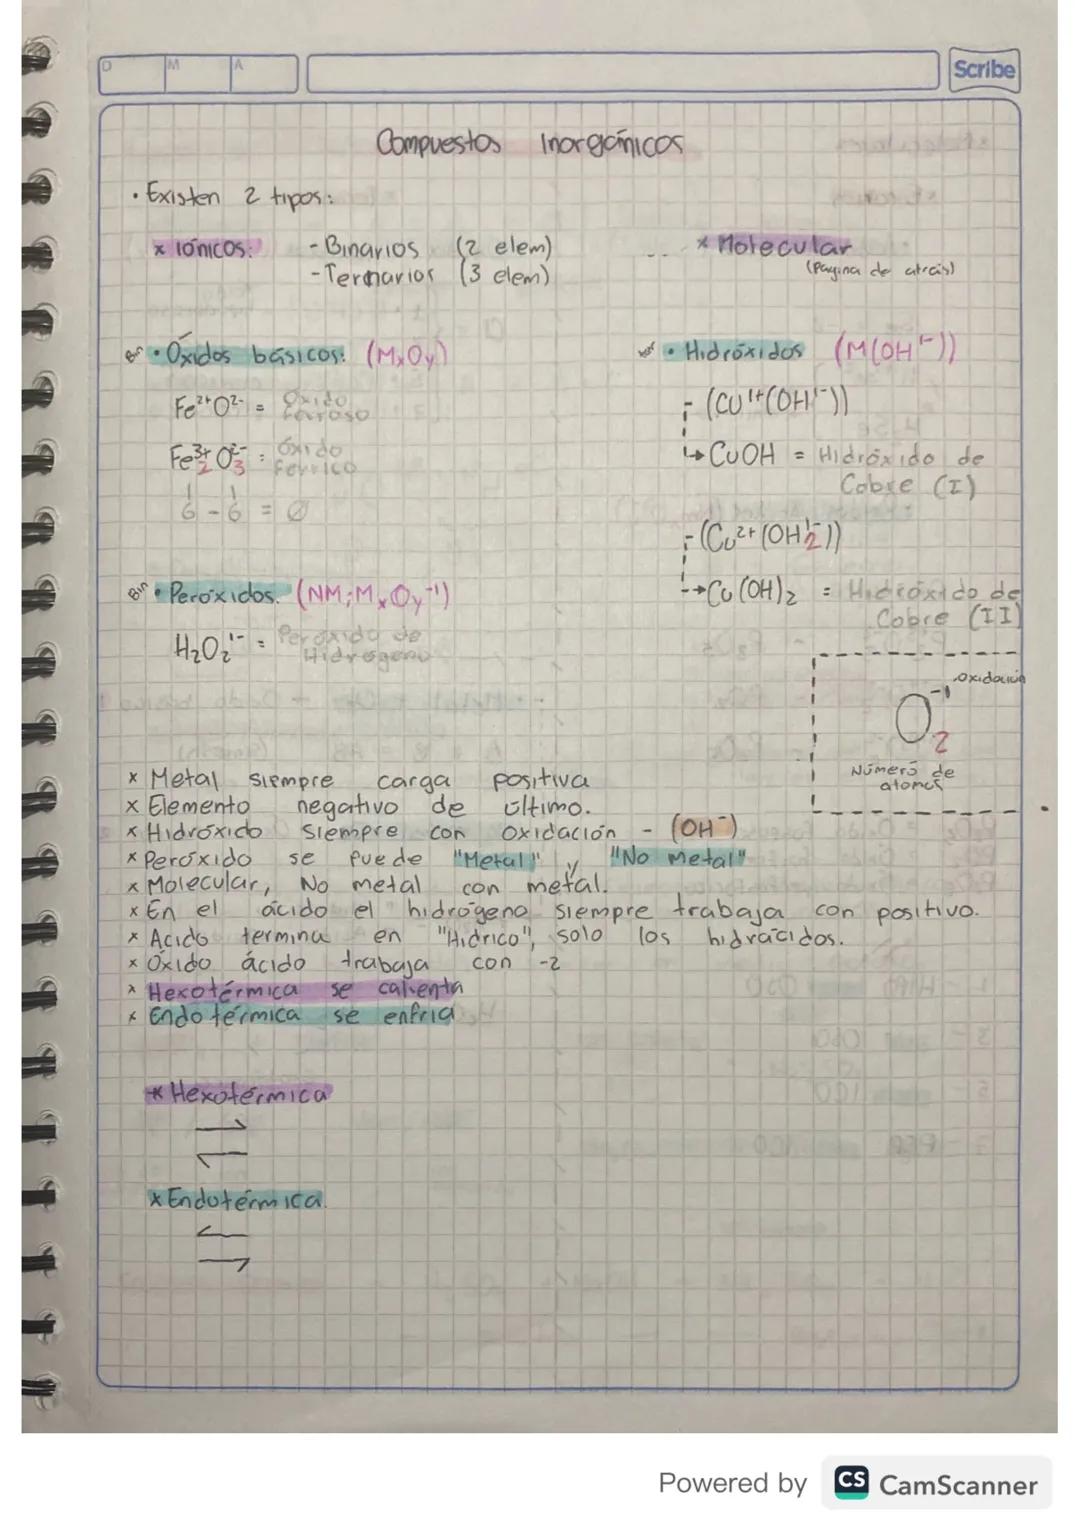 D M A
Scribe
Compuestos Inorgánicos
• Existen 2 tipos:
x Iónicos: - Binarios (2 elem)
- Ternarios (3 elem)
x Molecular
(Página de atrás)
Bin • Óxidos básicos: (MxOy)
Fe²⁺O²⁻ = Óxido Ferroso
Fe³⁺₂ O²⁻₃ : Óxido Férrico
6 - 6 = Ø
• Hidróxidos (M(OH¹⁻))
- (Cu¹⁺(OH¹⁻))
↳ CuOH = Hidróxido de
Cobre (I)
- (Cu²⁺(OH¹⁻₂))
→ Cu(OH)₂ = Hidróxido de
Cobre (II)
Bin • Peróxidos. (NM;MxOy⁻¹)
H₂O₂¹⁻ = Peróxido de
Hidrógeno
Oxidación
O⁻¹₂
Número de
atomos
x Metal siempre carga positiva
x Elemento negativo de último.
x Hidróxido siempre con oxidación - (OH⁻)
x Peróxido se puede "Metal" y "No metal"
x Molecular, No metal con metal.
x En el ácido el hidrógeno siempre trabaja con positivo.
x Acido termina en "Hídrico", solo los hidrácidos.
x Óxido ácido trabaja con -2
x Hexotérmica se calienta
x Endotérmica se enfria
x Hexotérmica
⇌
x Endotérmica.
⇆
Powered by CS CamScanner